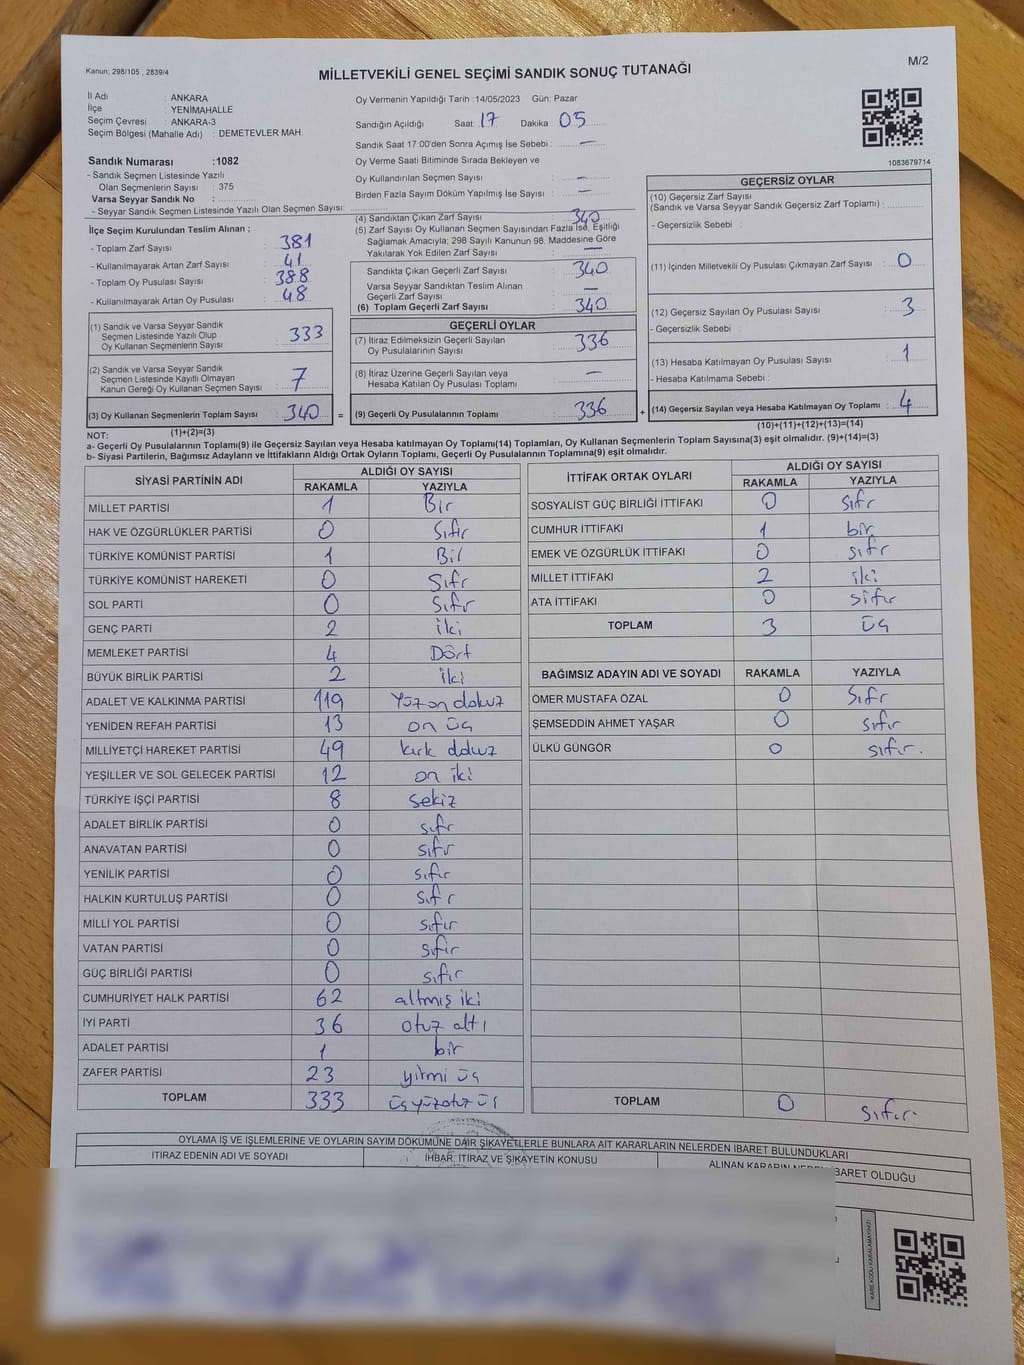 Kanun: 298/105 , 2839/4
MİLLETVEKİLİ GENEL SEÇİMİ SANDIK SONUÇ TUTANAĞI
M/2
İl Adı : ANKARA
İlçe : YENİMAHALLE
Seçim Çevresi : ANKARA-3
Seçim Bölgesi (Mahalle Adı) : DEMETEVLER MAH.
Sandık Numarası :1082
- Sandık Seçmen Listesinde Yazılı
Olan Seçmenlerin Sayısı : 375
Varsa Seyyar Sandık No :
- Seyyar Sandık Seçmen Listesinde Yazılı Olan Seçmen Sayısı:
Oy Vermenin Yapıldığı Tarih :14/05/2023 Gün: Pazar
Sandığın Açıldığı Saat: 17 Dakika : 05
Sandık Saat 17:00'den Sonra Açımış İse Sebebi : —
Oy Verme Saati Bitiminde Sırada Bekleyen ve
Oy Kullandırılan Seçmen Sayısı : —
Birden Fazla Sayım Döküm Yapılmış İse Sayısı : —
1083679714
İlçe Seçim Kurulundan Teslim Alınan ;
- Toplam Zarf Sayısı : 381
- Kullanılmayarak Artan Zarf Sayısı : 41
- Toplam Oy Pusulası Sayısı : 388
- Kullanılmayarak Artan Oy Pusulası : 48
(1) Sandık ve Varsa Seyyar Sandık
Seçmen Listesinde Yazılı Olup
Oy Kullanan Seçmenlerin Sayısı : 333
(2) Sandık ve Varsa Seyyar Sandık
Seçmen Listesinde Kayıtlı Olmayan
Kanun Gereği Oy Kullanan Seçmen Sayısı : 7
(3) Oy Kullanan Seçmenlerin Toplam Sayısı : 340 =
(1)+(2)=(3)
(4) Sandıktan Çıkan Zarf Sayısı : 340
(5) Zarf Sayısı Oy Kullanan Seçmen Sayısından Fazla İse, Eşitliği
Sağlamak Amacıyla; 298 Sayılı Kanunun 98. Maddesine Göre
Yakılarak Yok Edilen Zarf Sayısı : —
Sandıkta Çıkan Geçerli Zarf Sayısı : 340
Varsa Seyyar Sandıktan Teslim Alınan
Geçerli Zarf Sayısı : —
(6) Toplam Geçerli Zarf Sayısı : 340
GEÇERLİ OYLAR
(7) İtiraz Edilmeksizin Geçerli Sayılan
Oy Pusulalarının Sayısı : 336
(8) İtiraz Üzerine Geçerli Sayılan veya
Hesaba Katılan Oy Pusulası Toplamı : —
(9) Geçerli Oy Pusulalarının Toplamı : 336 +
GEÇERSİZ OYLAR
(10) Geçersiz Zarf Sayısı
(Sandık ve Varsa Seyyar Sandık Geçersiz Zarf Toplamı) :
- Geçersizlik Sebebi :
(11) İçinden Milletvekili Oy Pusulası Çıkmayan Zarf Sayısı : 0
(12) Geçersiz Sayılan Oy Pusulası Sayısı : 3
- Geçersizlik Sebebi :
(13) Hesaba Katılmayan Oy Pusulası Sayısı : 1
- Hesaba Katılmama Sebebi :
(14) Geçersiz Sayılan veya Hesaba Katılmayan Oy Toplamı : 4
(10)+(11)+(12)+(13)=(14)
NOT:
a- Geçerli Oy Pusulalarının Toplamı(9) ile Geçersiz Sayılan veya Hesaba katılmayan Oy Toplamı(14) Toplamları, Oy Kullanan Seçmenlerin Toplam Sayısına(3) eşit olmalıdır. (9)+(14)=(3)
b- Siyasi Partilerin, Bağımsız Adayların ve İttifakların Aldığı Ortak Oyların Toplamı, Geçerli Oy Pusulalarının Toplamına(9) eşit olmalıdır.
SİYASİ PARTİNİN ADI ALDIĞI OY SAYISI
RAKAMLA YAZIYLA
MİLLET PARTİSİ 1 Bir
HAK VE ÖZGÜRLÜKLER PARTİSİ 0 Sıfır
TÜRKİYE KOMÜNİST PARTİSİ 1 Bir
TÜRKİYE KOMÜNİST HAREKETİ 0 Sıfır
SOL PARTİ 0 Sıfır
GENÇ PARTİ 2 iki
MEMLEKET PARTİSİ 4 Dört
BÜYÜK BİRLİK PARTİSİ 2 iki
ADALET VE KALKINMA PARTİSİ 119 Yüz on dokuz
YENİDEN REFAH PARTİSİ 13 on üç
MİLLİYETÇİ HAREKET PARTİSİ 49 kırk dokuz
YEŞİLLER VE SOL GELECEK PARTİSİ 12 on iki
TÜRKİYE İŞÇİ PARTİSİ 8 sekiz
ADALET BİRLİK PARTİSİ 0 sıfır
ANAVATAN PARTİSİ 0 sıfır
YENİLİK PARTİSİ 0 sıfır
HALKIN KURTULUŞ PARTİSİ 0 sıfır
MİLLİ YOL PARTİSİ 0 sıfır
VATAN PARTİSİ 0 sıfır
GÜÇ BİRLİĞİ PARTİSİ 0 sıfır
CUMHURİYET HALK PARTİSİ 62 altmış iki
İYİ PARTİ 36 otuz altı
ADALET PARTİSİ 1 bir
ZAFER PARTİSİ 23 yirmi üç
TOPLAM 333 üçyüzotuz üç
İTTİFAK ORTAK OYLARI ALDIĞI OY SAYISI
RAKAMLA YAZIYLA
SOSYALİST GÜÇ BİRLİĞİ İTTİFAKI 0 sıfır
CUMHUR İTTİFAKI 1 bir
EMEK VE ÖZGÜRLÜK İTTİFAKI 0 sıfır
MİLLET İTTİFAKI 2 iki
ATA İTTİFAKI 0 sıfır
TOPLAM 3 üç
BAĞIMSIZ ADAYIN ADI VE SOYADI RAKAMLA YAZIYLA
ÖMER MUSTAFA ÖZAL 0 Sıfır
ŞEMSEDDİN AHMET YAŞAR 0 sıfır
ÜLKÜ GÜNGÖR 0 sıfır.
TOPLAM 0 sıfır.
OYLAMA İŞ VE İŞLEMLERİNE VE OYLARIN SAYIM DÖKÜMÜNE DAİR ŞİKAYETLERLE BUNLARA AİT KARARLARIN NELERDEN İBARET BULUNDUKLARI
İTİRAZ EDENİN ADI VE SOYADI İHBAR, İTİRAZ VE ŞİKAYETİN KONUSU ALINAN KARARIN NEDEN İBARET OLDUĞU
KARE KODU KARALAMAYINIZ!